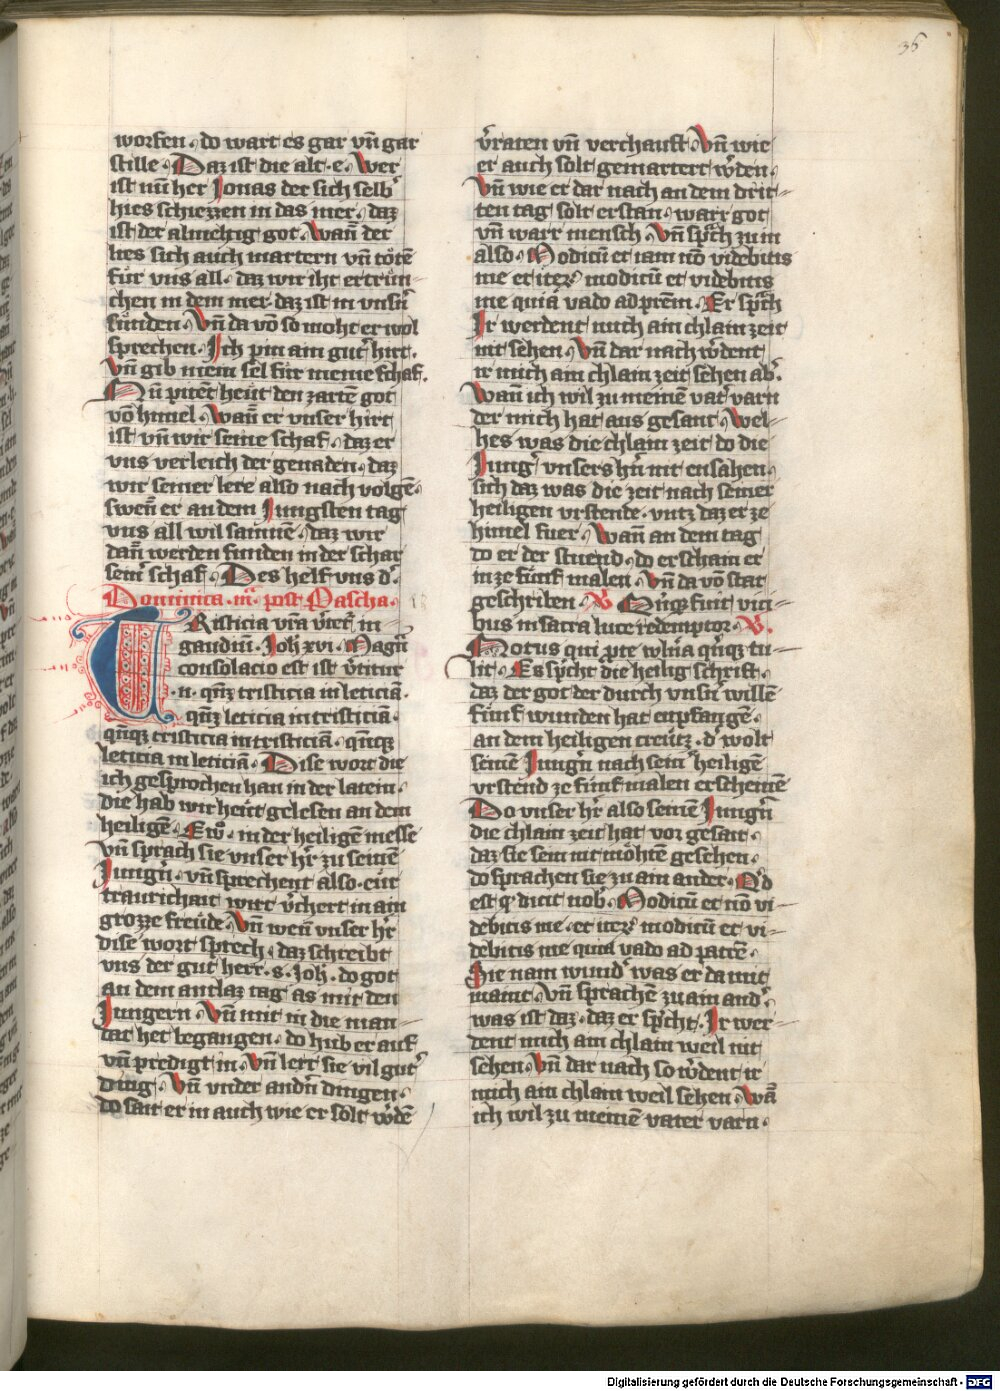 36
worfen · do wart es gar vn̄ gar
stille · Daz ist die alt · e · Wer
ist nu͂ her Jonas der sich selb᾽
hies schiezzen in das mer · daz
ist der almehtig got · Wan̄ der
lies sich auch martern vn̄ tote͂
fur vns all · daz wir iht ertrun-
chen in dem mer daz ist in vnser᾽n
sunden · Vn̄ da vō so moht er wol
sprechen · Ich pin ain gut᾽ hirt ·
Vn̄ gib mein sel fur meine schaf ·
Nu pitet heut den zarte͂ got
vō himel · Wan̄ er vnser hirt
ist vn̄ wir seine schaf · daz er
vns verleich der genaden · daz
wir seiner lere also nach volge͂ ·
swen̄ er an dem Jungsten tag
vns all wil samne͂ · daz wir
dan̄ werden funden in der schar
sein᾽ schaf · Des helf vns d᾽ ·
Dominica · iii᾽ · post Pascha ·
Tristicia vr̄a v᾽tet᾽ in
gaudiu͂ · Joh᾽ xvi · Magn᾽
consolacio est ist v᾽titur
· n · qn̄qz tristicia in leticia͂ ·
qn̄qz leticia in tristicia͂ ·
qn̄qz tristicia in tristicia͂ · qn̄qz
leticia in leticia͂ · Dise wort die
ich gesprochen han in der latein ·
die hab wir heut gelesen an dem
heilige͂ · Ew᾽ · in der heilige͂ messe
vn̄ sprach sie vnser h᾽r zu seine͂
Jung᾽n · vn̄ sprechent also · eur
traurichait wirt v᾽chert in ain
grozze freude · Vn̄ wen̄ vnser h᾽r
dise wort sprech · daz schreibt
vns der gut herr · s · Joh᾽ · do got
an dem antlaz tag as mit den
Jungern · Vn̄ mit in die man-
dat het begangen · do hub er auf
vn̄ predigt in · Vn̄ lert sie vil gut᾽
ding · Vn̄ vnder andn̄ dingen ·
do sait er in auch wie er solt w᾽de͂
v᾽raten vn̄ verchauft · Vn̄ wie
er auch solt gemartert w᾽den ·
Vn̄ wie er dar nach an dem drit-
ten tag solt erstan · warr got
vn̄ warr mensch · Vn̄ sp᾽ch zu in
also · Modicu͂ et iam nō videbitis
me et iter᾽ modicu͂ et videbitis
me quia vado ad pr̄em · Er sp᾽ch
Ir werdent mich ain chlain zeit
nit sehen · Vn̄ dar nach w᾽dent
ir mich ain chlain zeit sehen ab᾽ ·
Wan̄ ich wil zu meine͂ vat᾽ varn
der mich hat aus gesant · Wel-
hes was die chlain zeit do die
Jung᾽ vnsers h᾽n nit ensahen ·
sich daz was die zeit nach seiner
heiligen vrstende · vntz daz er ze
himel fuer · Wan̄ an dem tag
do er der stuend · do erschain er
in ze funf malen · Vn̄ da vō stat
geschriben · R᾽ · Qui͂qz fuit vici-
bus in sacra luce redemptor · V᾽ ·
Notus qui p̄te vuln᾽a qui͂qz tu-
lit · Es sp᾽cht die heilig schrift ·
daz der got der durch vnser᾽n wille͂
funf wunden hat enpfange͂ ·
an dem heiligen creutz · d᾽ wolt
seine͂ Jung᾽n nach sein᾽ heilige͂
vrstend ze funf malen erscheine͂
Do vnser h᾽r also seine͂ Jung᾽n
die chlain zeit hat vor gesait ·
daz sie sein nit mohte͂ gesehen ·
do sprachen sie zu ain ander · Q᾽d
est q᾽ dicit nob᾽ · Modicu͂ et nō vi-
debitis me · et iter᾽ modicu͂ et vi-
debitis me quia vado ad patre͂ ·
Sie nam wund᾽ was er da mit
maint · Vn̄ sprache͂ zu ain and᾽ ·
was ist daz · daz er sp᾽cht · Ir wer-
dent mich ain chlain weil nit
sehen · Vn̄ dar nach so w᾽dent ir
mich ain chlain weil sehen · Wan̄
ich wil zu meine͂ vater varn ·
Digitalisierung gefördert durch die Deutsche Forschungsgemeinschaft - DFG